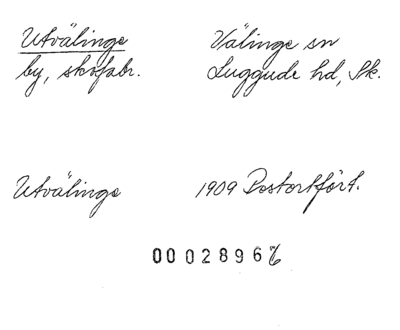 Utvälinge Välinge sn
by, skofabr. Luggude hd, Sk.
Utvälinge 1909 Postortfört.
00028967